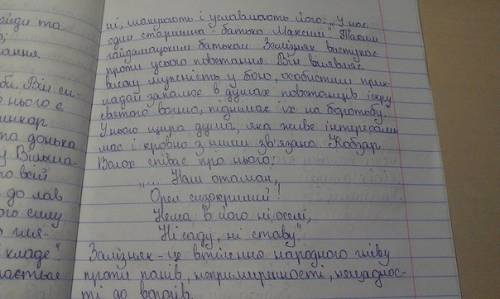 йди та
ні, шанують і уславляють його: „У нас
один старшина - батько Максим". Таким
гайдамацьким батьком Залізняк виступає
проти усього повстання. Він виявляє
високу мужність у бою, особистим прик-
ладом запалює в душах повстанців іскру
святого вогню, піднімає їх на боротьбу.
У нього щира душа, яка живе інтересами
мас і кровно з ними зв'язана. Кобзар
Волох співає про нього:
„... Наш отаман,
Орел сизокрилий!
Нема в його ні оселі,
Ні саду, ні ставу".
Залізняк - це втілення народного гніву
проти панів, непримиренності, нещаднос-
ті до ворогів.
ання.
бі. Він
нього є
та донька
у Вільша-
о всій
до лав
ого силу
кладе"